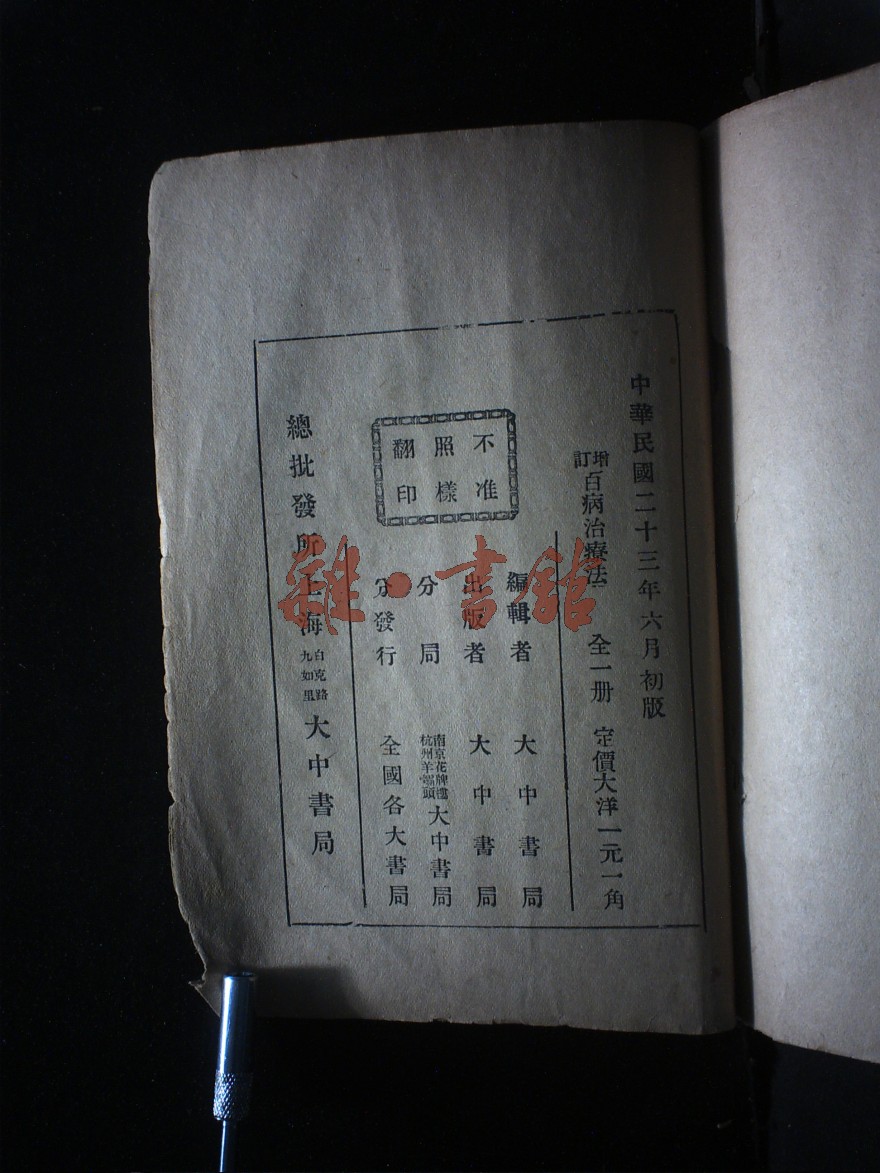 中華民國二十三年六月初版
增訂百病治療法 全一册 定價大洋一元一角
不准
照樣
翻印
編輯者 大中書局
出版者 大中書局
分局 南京花牌樓 杭州羊壩頭 大中書局
分發行 全國各大書局
總批發所上海 白克路 九如里 大中書局
雜·書館